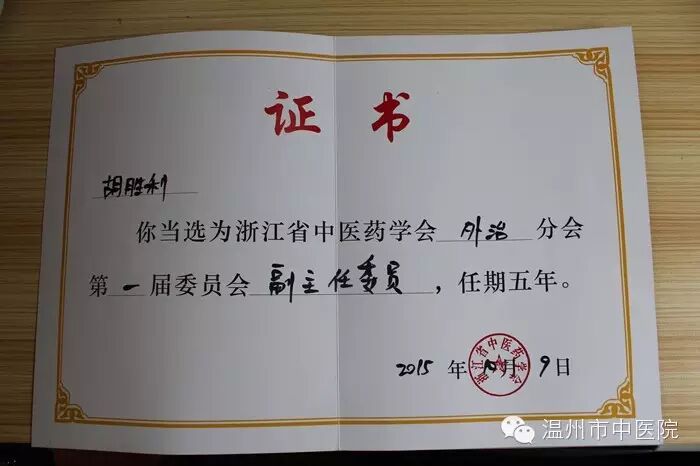 证书
胡胜利
你当选为浙江省中医药学会外治分会
第一届委员会副主任委员，任期五年。
浙江省中医药学会
2015年10月9日
温州市中医院